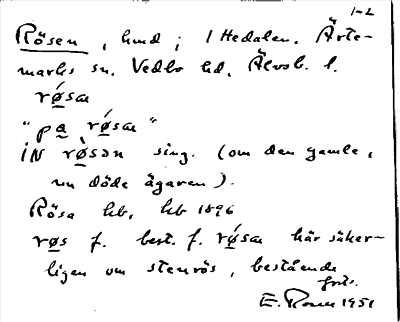 1-2
Rösen, hmd i 1 Hedalen. Ärte-
marks sn. Vedbo hd. Älvsb. l.
rǿsa
"pa rǿsa"
iN rø̀sən sing. (om den gamle,
nu döde ägaren).
Rösa hb, hb 1896
røs f. best. f. rǿsa här säker-
ligen om stenrös, bestående
forts.
1951